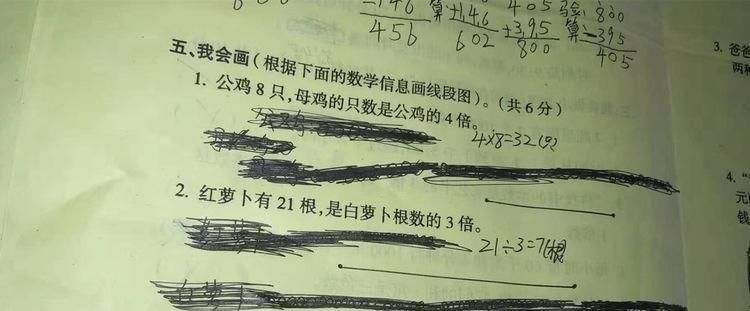 -146 算 +146 405 验 800
456 602 +395 算 -395
800 405
五、我会画(根据下面的数学信息画线段图)。(共6分)
1. 公鸡8只,母鸡的只数是公鸡的4倍。
4×8=32(只)
2. 红萝卜有21根,是白萝卜根数的3倍。
21÷3=7(根
白萝卜
3. 爸爸
两种
4. "
元
钱